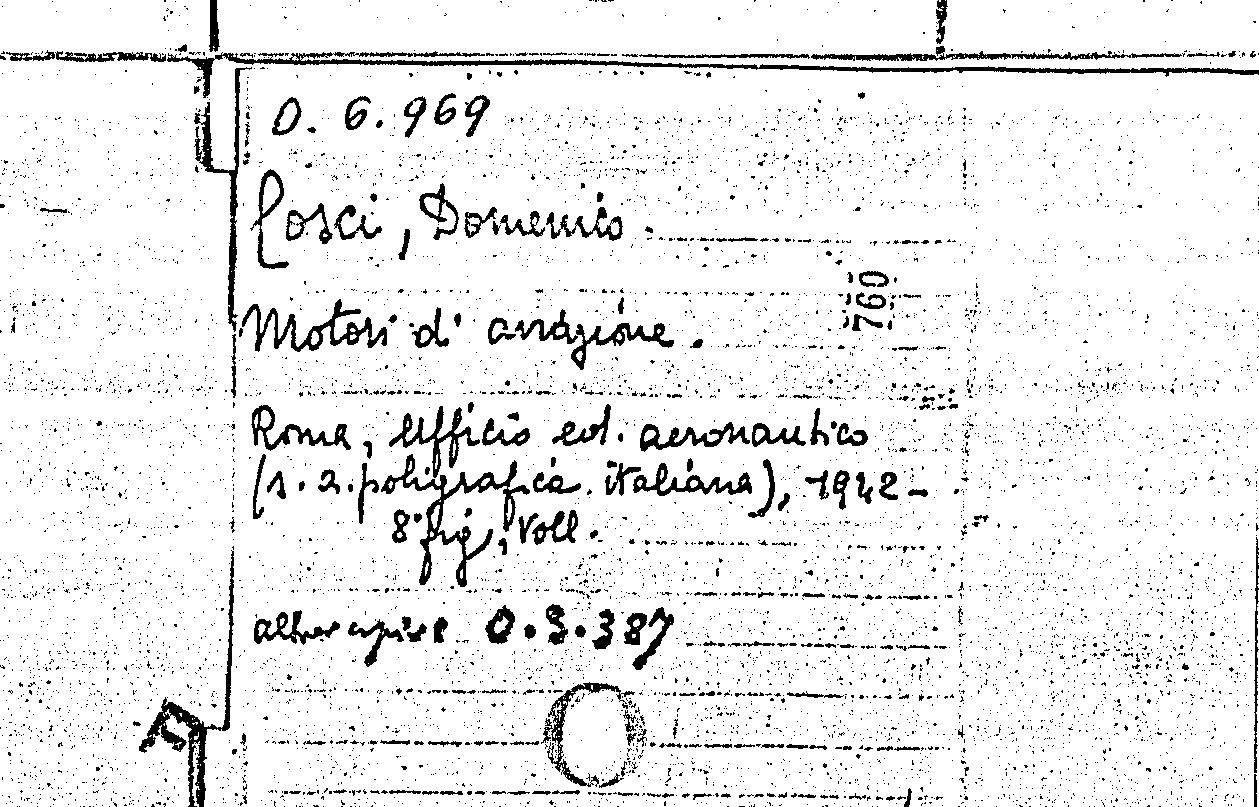 O. 6.969
Cosci, Domenico.
760
Motori d' aviazione.
Roma, Ufficio ed. aeronautico
(s. a. poligrafica italiana), 1942-
8° fig, voll.
altra copia O.3.387